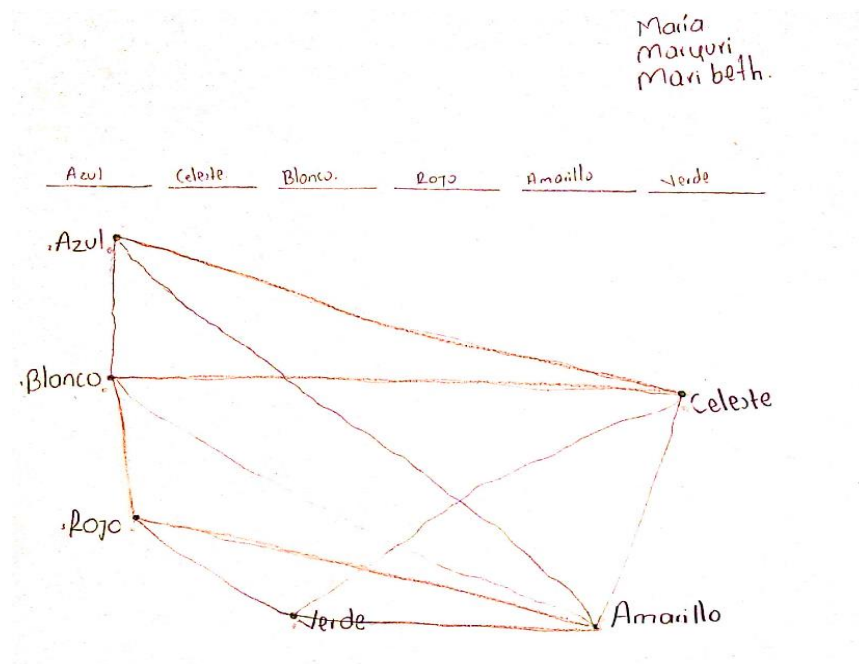 María
Maryuri
Mari beth.
Azul Celeste. Blanco. Rojo Amarillo Verde
.Azul.
.Blanco
Celeste
.Rojo
Verde Amarillo